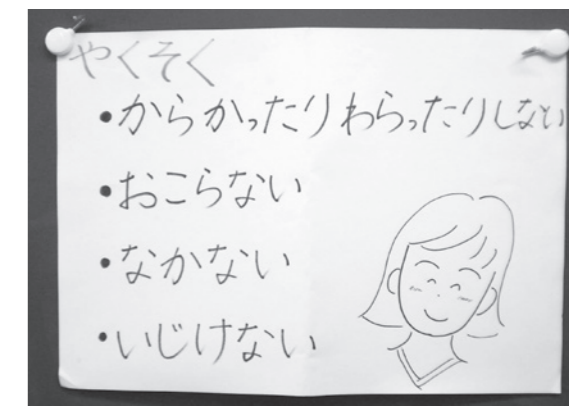 やくそく
•からかったりわらったりしない
•おこらない
•なかない
•いじけない